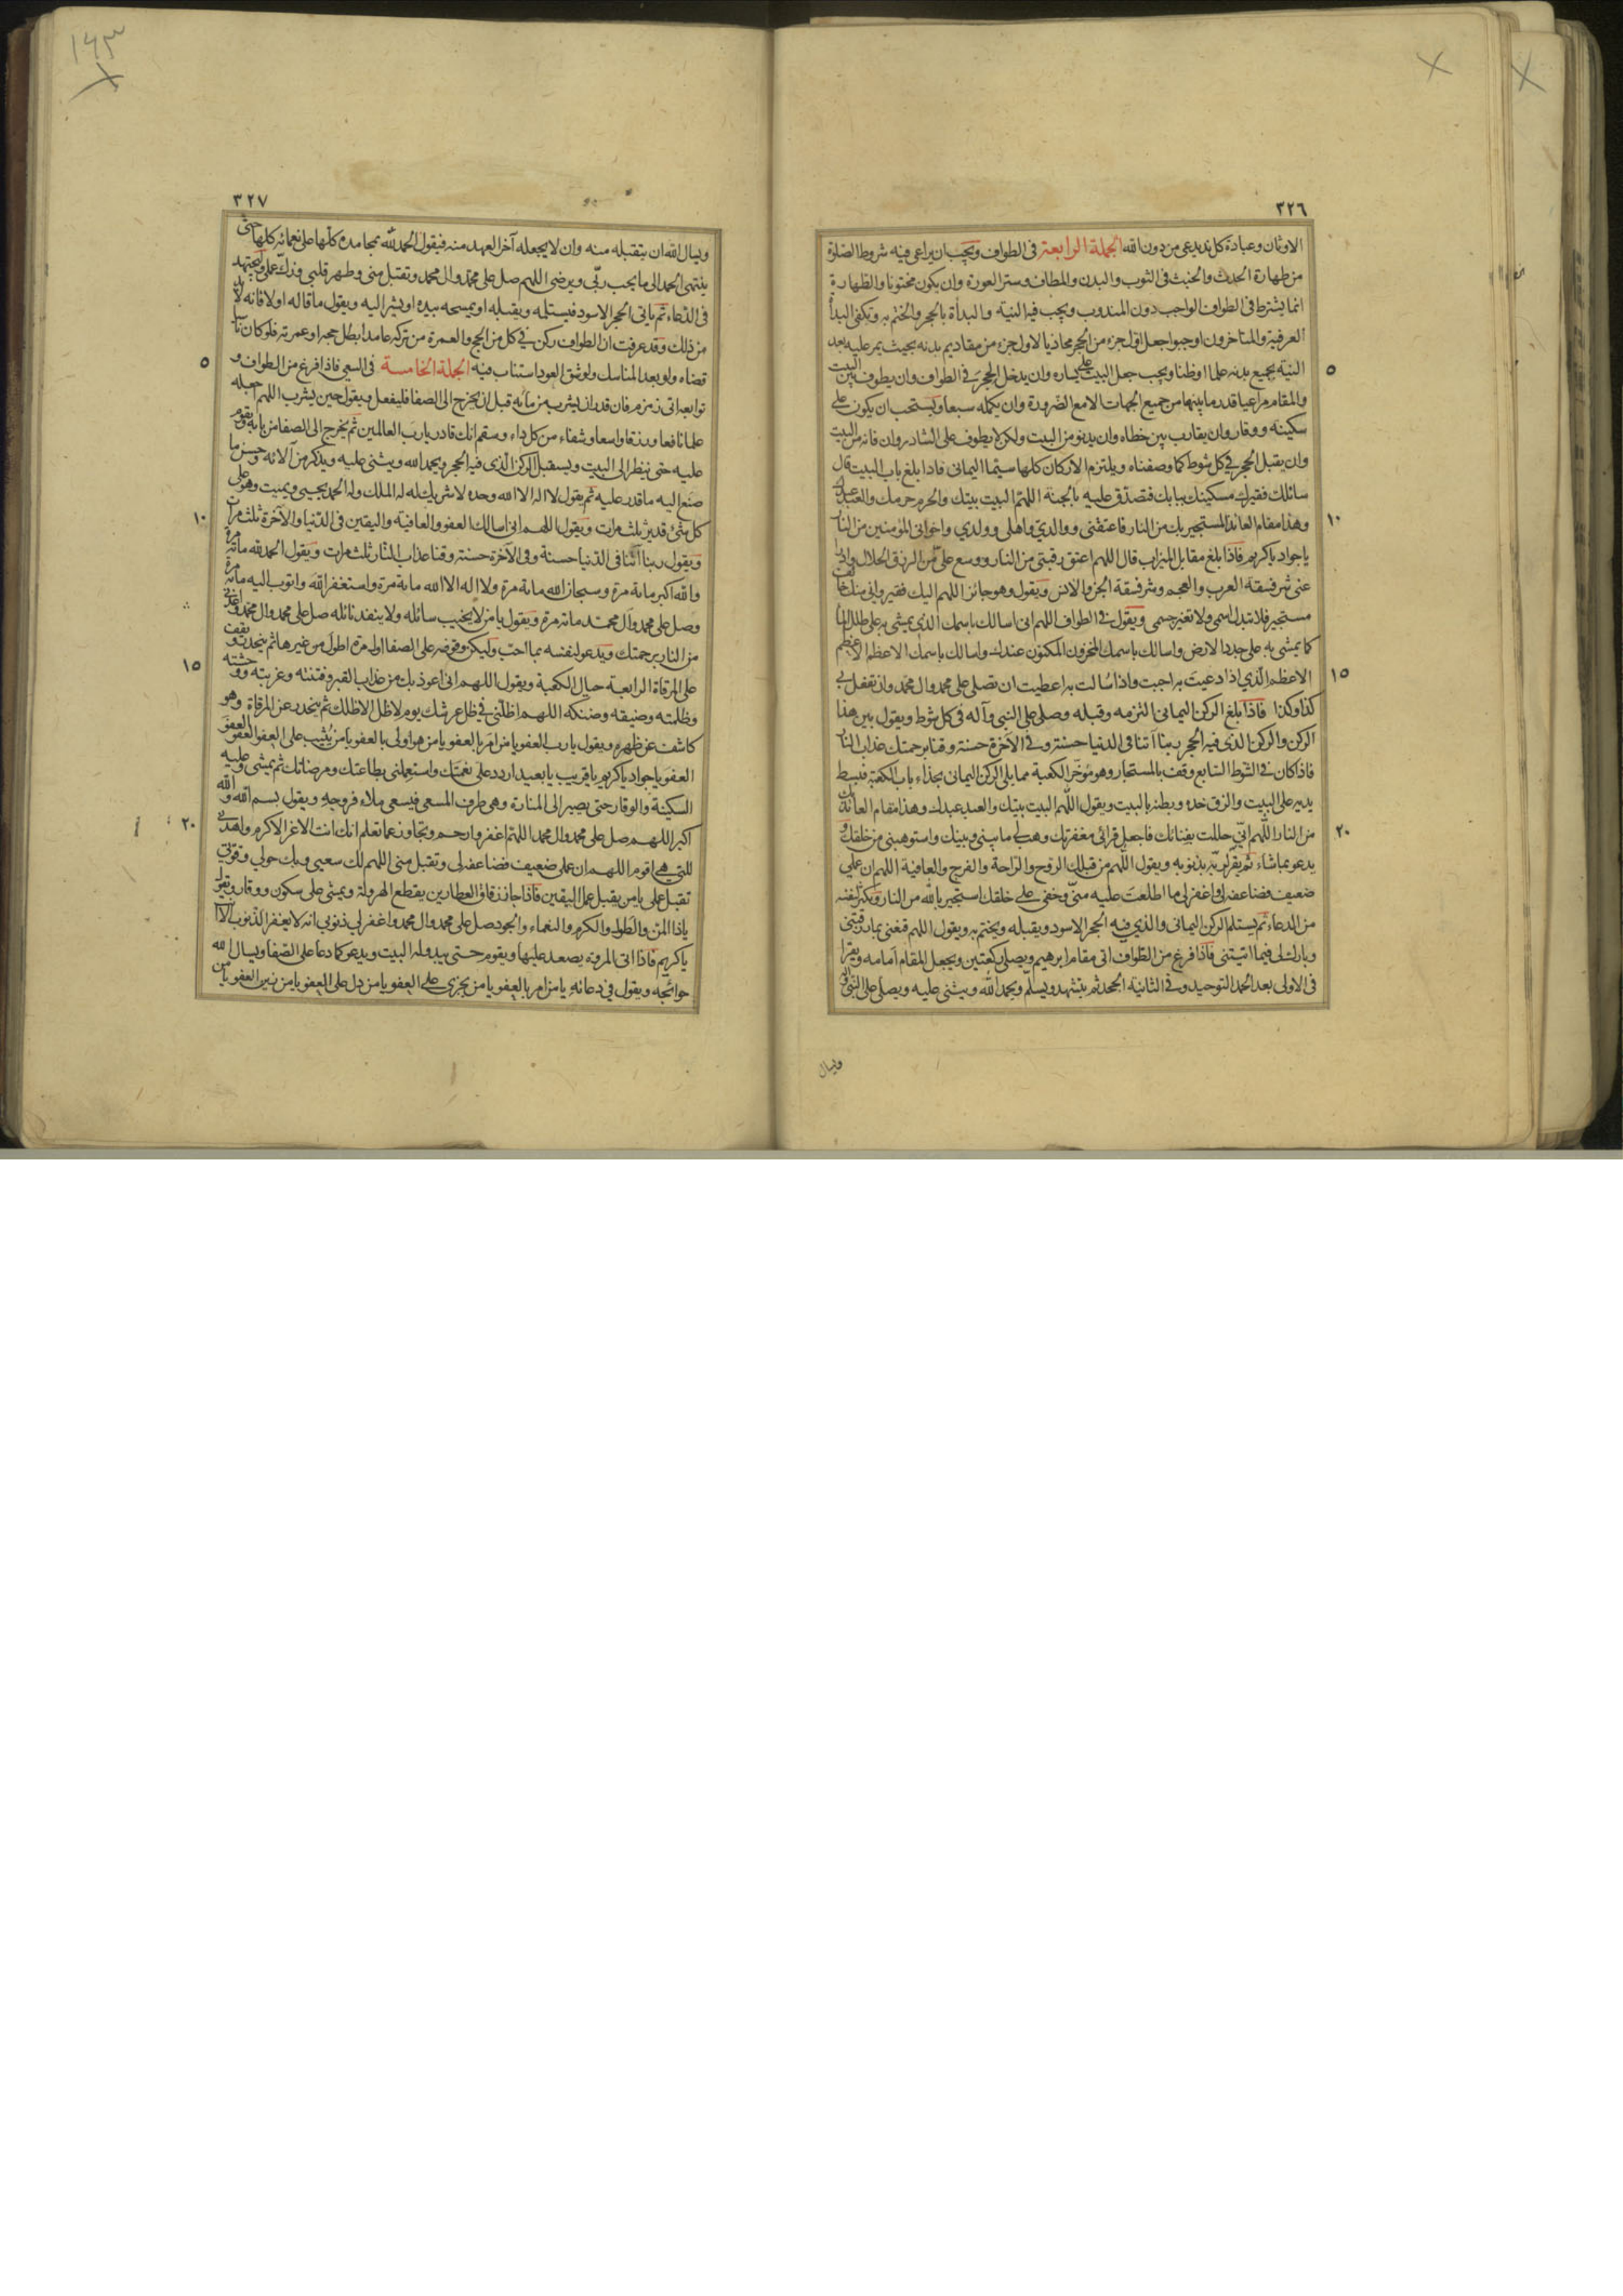 ٣٢٦
الاوثان وعبادة كل ند يدعى من دون الله الجملة الرابعة فى الطواف ويجب ان يراعى فيه شروط الصلوة
من طهارة الحدث والخبث فى الثوب والبدن والمطاف وستر العورة وان يكون مختونا والطهارة
انما يشترط فى الطواف الواجب دون المندوب ويجب فيه النية والبدأة بالحجر والختم به ويكفى البدأ
العرفية والمتاخرون اوجبوا جعل اول جزء من الحجر محاذيا لاول جزء من مقاديم بدنه بحيث يمر عليه بعد
النية بجميع بدنه علما او ظنا ويجب جعل البيت على يساره وان يدخل الحجر فى الطواف وان يطوف بين البيت
والمقام مراعيا قدر ما بينهما من جميع الجهات الا مع الضرورة وان يكمله سبعا ويستحب ان يكون على
سكينة ووقار وان يقارب بين خطاه وان يدنو من البيت ولكن لا يطوف على الشادروان فانه من البيت
وان يقبل الحجر فى كل شوط كما وصفناه ويلتزم الاركان كلها سيما اليمانى فاذا بلغ باب البيت قال
سائلك فقيرك مسكينك ببابك فتصدق عليه بالجنة اللهم البيت بيتك والحرم حرمك والعبد عبدك
وهذا مقام العائذ المستجير بك من النار فاعتقنى ووالدي واهلى وولدي واخوانى المؤمنين من النار
يا جواد يا كريم فاذا بلغ مقابل الميزاب قال اللهم اعتق رقبتى من النار ووسع على من الرزق الحلال وادرأ
عنى شر فسقة العرب والعجم وشر فسقة الجن والانس ويقول وهو جائز اللهم اليك فقير وانى منك خائف
مستجير فلا تبدل اسمى ولا تغير جسمى ويقول فى الطواف اللهم انى اسالك باسمك الذي يمشى به على طلل الماء
كما يمشى به على جدد الارض واسالك باسمك المخزون المكنون عندك واسالك باسمك الاعظم الاعظم
الاعظم الذي اذا دعيت به اجبت واذا سالت به اعطيت ان تصلى على محمد وال محمد وان تفعل بى
كذا وكذا فاذا بلغ الركن اليمانى التزمه وقبله وصلى على النبى وآله فى كل شوط ويقول بين هذا
الركن والركن الذي فيه الحجر ربنا آتنا فى الدنيا حسنة وفى الآخرة حسنة وقنا برحمتك عذاب النار
فاذا كان فى الشوط السابع وقف بالمستجار وهو مؤخر الكعبة مما يلى الركن اليمانى بحذاء باب الكعبة فبسط
يديه على البيت والزق خده وبطنه بالبيت ويقول اللهم البيت بيتك والعبد عبدك وهذا مقام العائذ بك
من النار اللهم انى حللت بفنائك فاجعل قرائى مغفرتك وهب لى ما بينى وبينك واستوهبنى من خلقك و
يدعو بما شاء ثم يقر لربه بذنوبه ويقول اللهم من قبلك الروح والراحة والفرج والعافية اللهم ان عملي
ضعيف فضاعفه لى واغفر لى ما اطلعت عليه منى وخفى على خلقك استجير بالله من النار ويكثر لنفسه
من الدعاء ثم يستلم الركن اليمانى والذي فيه الحجر الاسود ويقبله ويختم به ويقول اللهم قنعنى بما رزقتنى
وبارك لى فيما آتيتنى فاذا فرغ من الطواف اتى مقام ابرهيم ويصلى ركعتين ويجعل المقام امامه ويقرا
فى الاولى بعد الحمد التوحيد وفى الثانية الجحد ثم يتشهد ويسلم ويحمد الله ويثنى عليه ويصلى على النبى وآله
ويسال
٥
١٠
١٥
٢٠
١٦٣
٣٢٧
ويسال الله ان يتقبله منه وان لا يجعله آخر العهد منه فيقول الحمد لله بمحامده كلها على نعمائه كلها حتى
ينتهى الحمد الى ما يحب ربى ويرضى اللهم صل على محمد وال محمد وتقبل منى وطهر قلبى وزك عملى ويجتهد
فى الدعاء ثم ياتى الحجر الاسود فيستلمه ويقبله او يمسحه بيده او يشير اليه ويقول ما قاله اولا فانه لا بد
من ذلك وقد عرفت ان الطواف ركن فى كل من الحج والعمرة من تركه عامدا بطل حجه او عمرته فلو كان ناسيا
قضاه ولو بعد المناسك ولو شق العود استناب فيه الجملة الخامسة فى السعى فاذا فرغ من الطواف و
توابعه اتى زمزم فان قدر ان يشرب من مائه قبل ان يخرج الى الصفا فليفعل ويقول حين يشرب اللهم اجعله
علما نافعا ورزقا واسعا وشفاء من كل داء وسقم انك قادر يا رب العالمين ثم يخرج الى الصفا من بابه ويقوم
عليه حتى ينظر الى البيت ويستقبل الركن الذى فيه الحجر ويحمد الله ويثنى عليه ويذكر من آلائه وحسن ما
صنع اليه ما قدر عليه ثم يقول لا اله الا الله وحده لا شريك له له الملك وله الحمد يحيى ويميت وهو على
كل شئ قدير ثلث مرات ويقول اللهم انى اسالك العفو والعافية واليقين فى الدنيا والآخرة ثلث مرات
ويقول ربنا آتنا فى الدنيا حسنة وفى الآخرة حسنة وقنا عذاب النار ثلث مرات ويقول الحمد لله مائة مرة
والله اكبر مائة مرة وسبحان الله مائة مرة ولا اله الا الله مائة مرة واستغفر الله واتوب اليه مائة مرة
وصل على محمد وآل محمد مائة مرة ويقول يا من لا يخيب سائله ولا ينفد نائله صل على محمد وال محمد واعذنى
من النار برحمتك ويدعو لنفسه بما احب وليكن وقوفه على الصفا اول مرة اطول من غيرها ثم ينحدر ويقف
على المرقاة الرابعة حيال الكعبة ويقول اللهم انى اعوذ بك من عذاب القبر وفتنته وغربته ووحشته
وظلمته وضيقه وضنكه اللهم اظلنى فى ظل عرشك يوم لا ظل الا ظلك ثم ينحدر عن المرقاة وهو
كاشف عن ظهره ويقول يا رب العفو يا من امر بالعفو يا من هو اولى بالعفو يا من يثيب على العفو العفو العفو
العفو يا جواد يا كريم يا قريب يا بعيد اردد على نعمتك واستعملنى بطاعتك ومرضاتك ثم يمشى وعليه
السكينة والوقار حتى يصير الى المنارة وهى طرف المسعى فيسعى ملاء فروجه ويقول بسم الله والله
اكبر اللهم صل على محمد وال محمد اللهم اغفر وارحم وتجاوز عما تعلم انك انت الاعز الاكرم واهدنى
للتى هى اقوم اللهم ان عملى ضعيف فضاعفه لى وتقبل منى اللهم لك سعيى وبك حولى وقوتى
تقبل عملى يا من يقبل عمل المتقين فاذا جاز زقاق العطارين يقطع الهرولة ويمشى على سكون ووقار ويقول
يا ذا المن والطول والكرم والنعماء والجود صل على محمد وال محمد واغفر لى ذنوبى انه لا يغفر الذنوب الا انت
يا كريم فاذا اتى المروة يصعد عليها ويقوم حتى يبدو له البيت ويدعو كما دعا على الصفا ويسال الله
حوائجه ويقول فى دعائه يا من امر بالعفو يا من يجزى على العفو يا من دل على العفو يا من زين العفو يا من
٥
١٠
١٥
٢٠